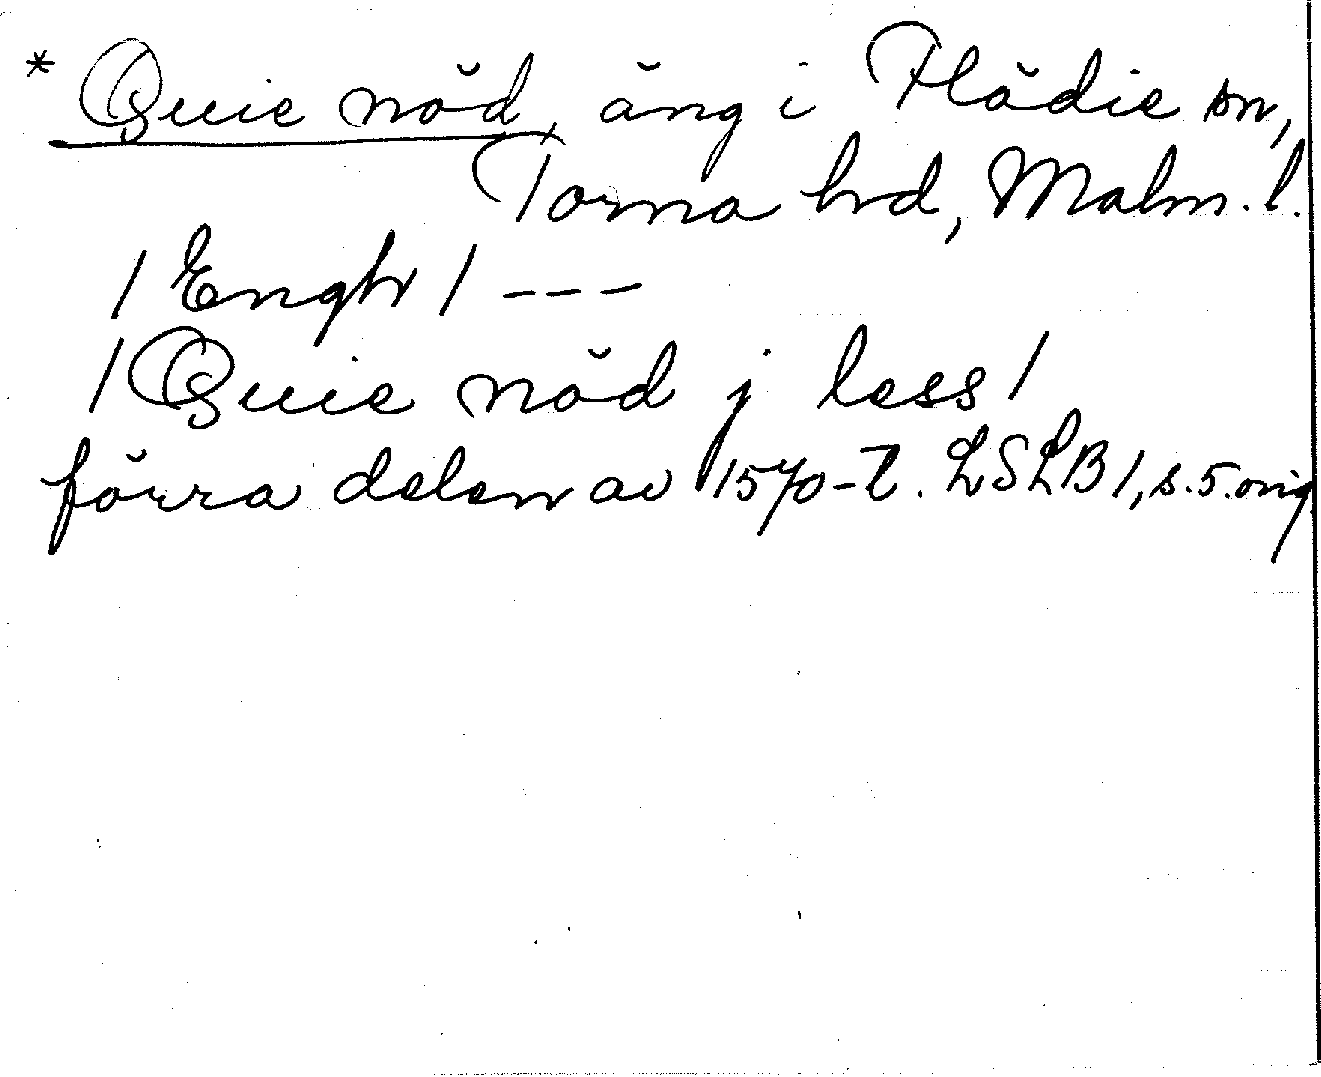 * Quie nöd, äng i Flädie sn,
Torna hrd, Malm. l.
/ Engh / ---
/ Quie nöd j less /
förra delen av 1570-t. LSLB 1, s. 5. orig